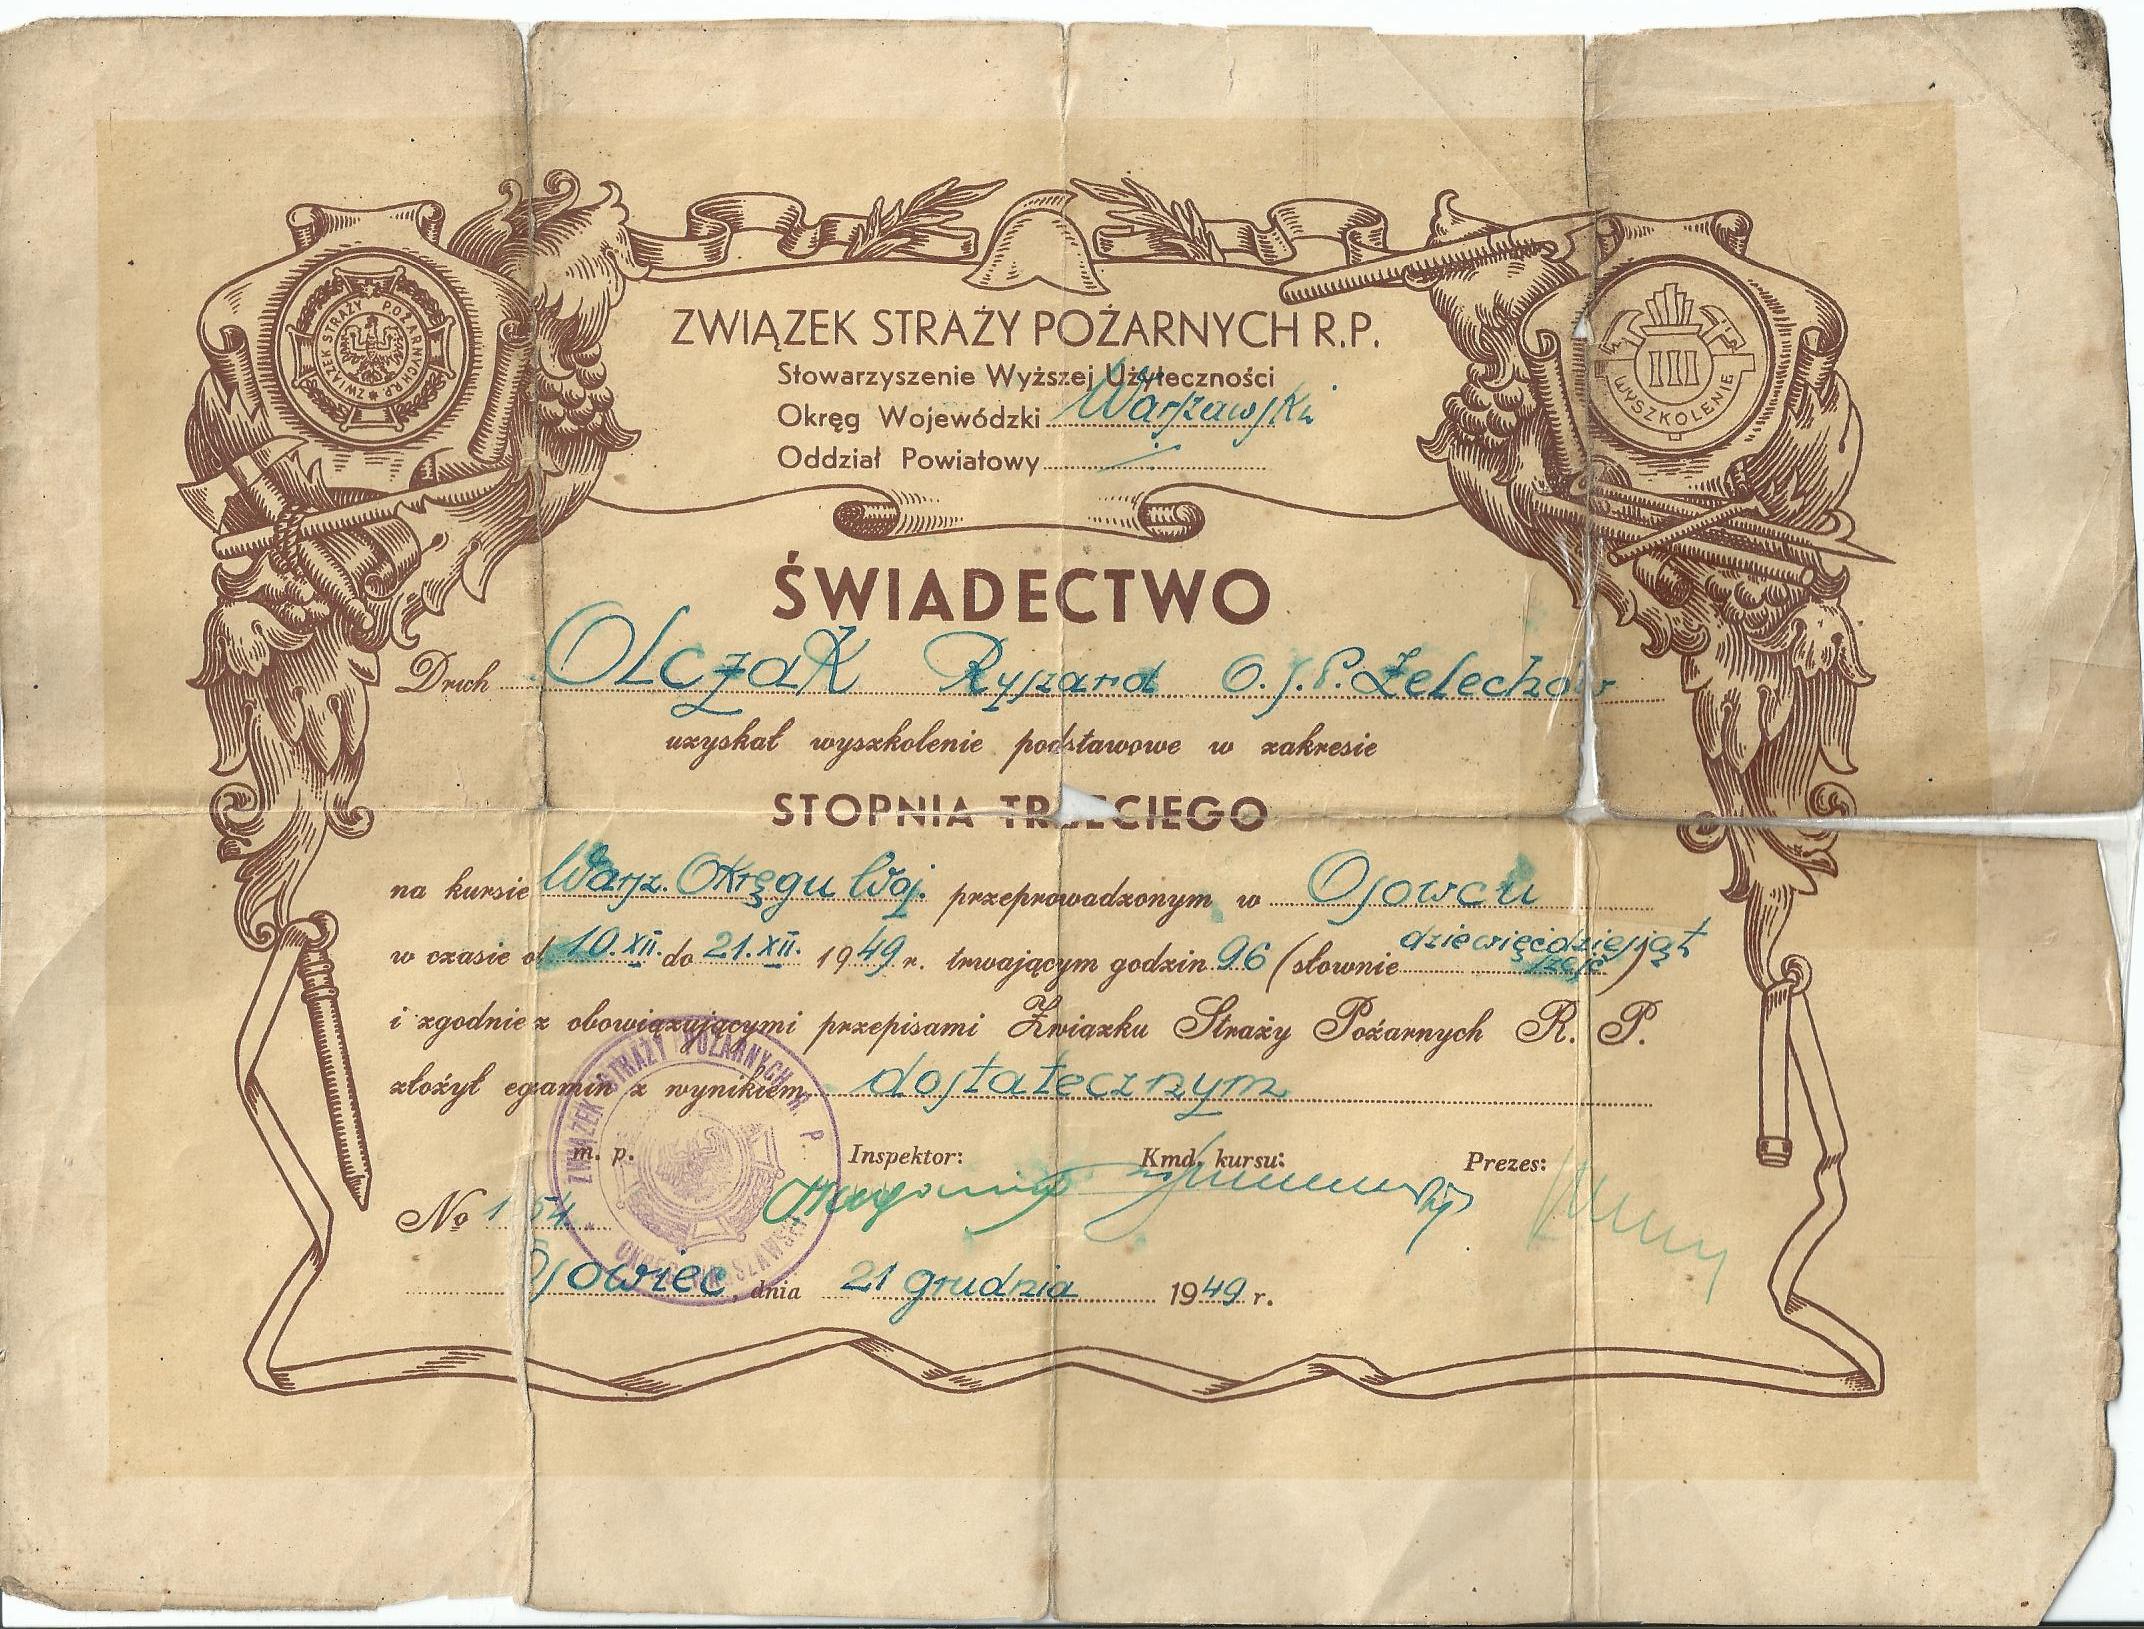 ZWIĄZEK STRAŻY POŻARNYCH R.P.
ZWIĄZEK STRAŻY POŻARNYCH R.P.
Stowarzyszenie Wyższej Użyteczności
Okręg Wojewódzki Warszawski
Oddział Powiatowy
III
WYSZKOLENIE
ŚWIADECTWO
Druch Olczak Ryszard O.S.P. Żelechów
uzyskał wyszkolenie podstawowe w zakresie
STOPNIA TRZECIEGO
na kursie Warsz. Okręgu Woj. przeprowadzonym w Osowcu
w czasie od 10.XII. do 21.XII. 1949 r. trwającym godzin 96 (słownie dziewięćdziesiąt sześć)
i zgodnie z obowiązującymi przepisami Związku Straży Pożarnych R. P.
złożył egzamin z wynikiem dostatecznym
ZWIĄZEK STRAŻY POŻARNYCH R. P.
m. p. Inspektor: Kmd. kursu: Prezes:
No 154
Osowiec, dnia 21 grudnia 1949 r.